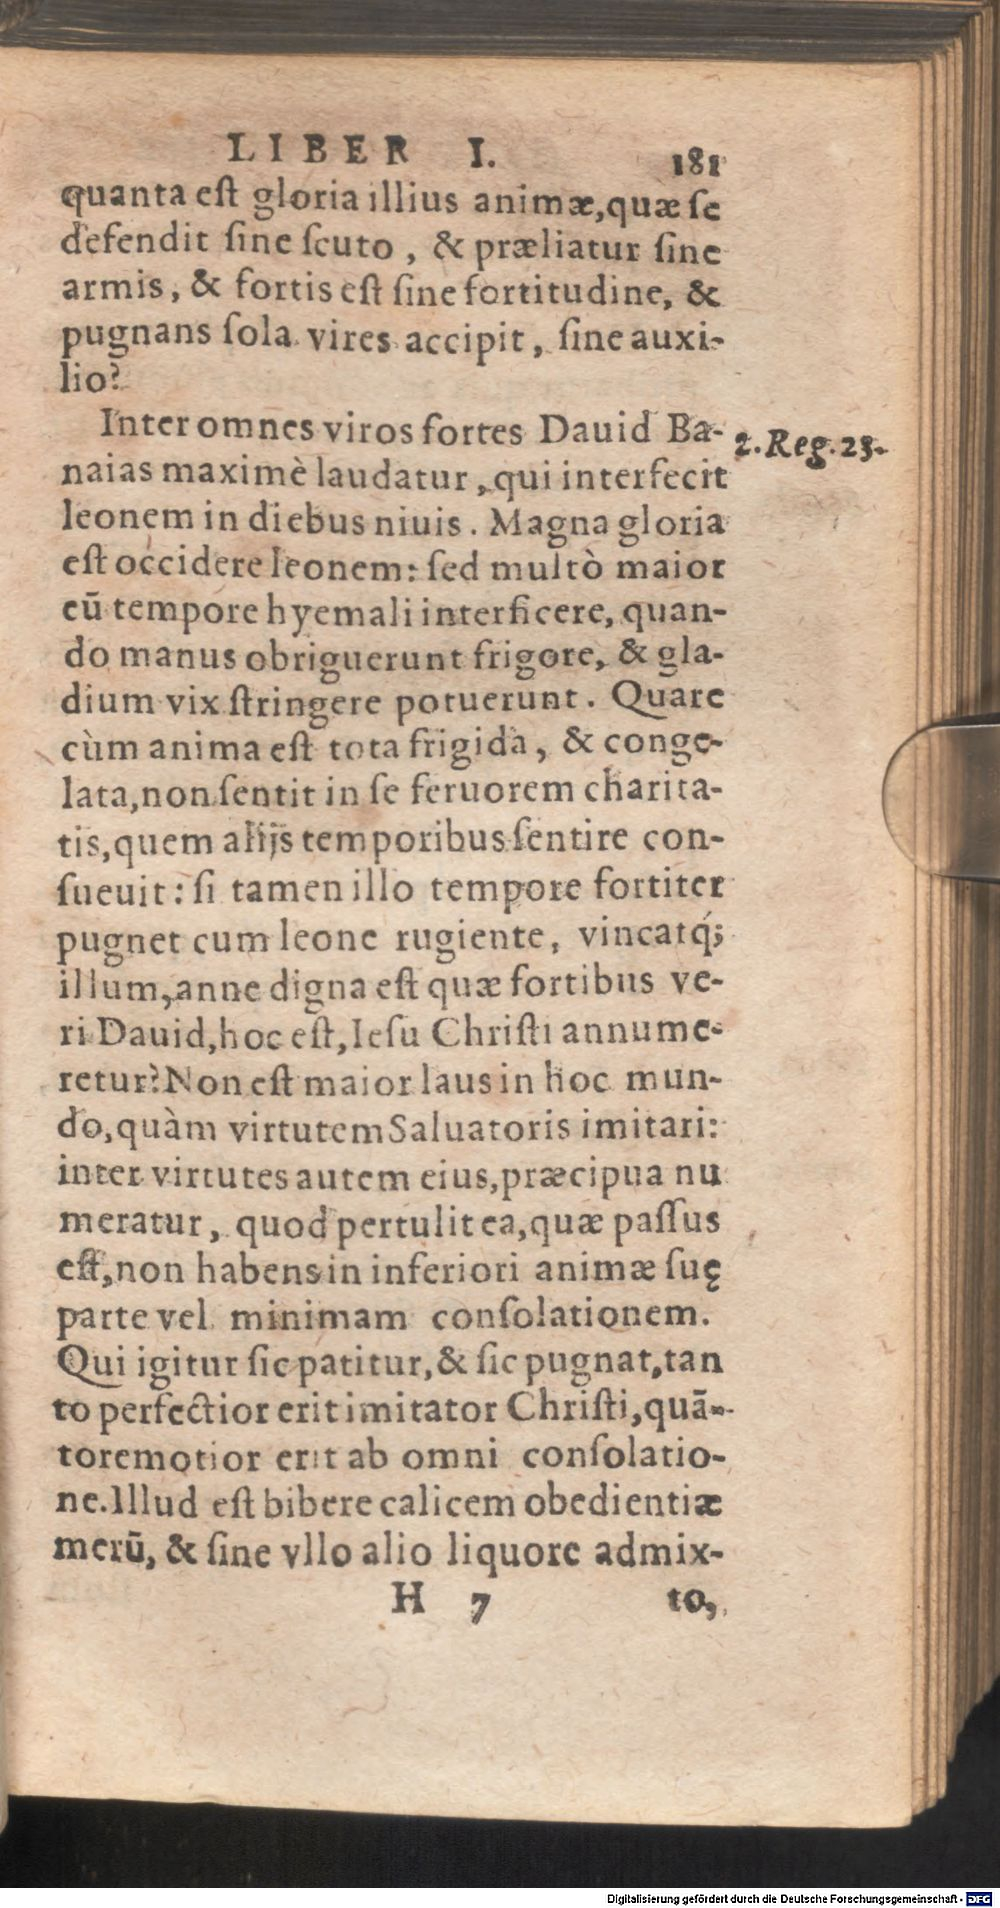 LIBER I. 181
quanta est gloria illius animæ, quæ se
defendit sine scuto, & præliatur sine
armis, & fortis est sine fortitudine, &
pugnans sola vires accipit, sine auxi-
lio?
Inter omnes viros fortes Dauid Ba-
2. Reg. 23.
naias maximè laudatur, qui interfecit
leonem in diebus niuis. Magna gloria
est occidere leonem: sed multò maior
eū tempore hyemali interficere, quan-
do manus obriguerunt frigore, & gla-
dium vix stringere potuerunt. Quare
cùm anima est tota frigida, & conge-
lata, non sentit in se feruorem charita-
tis, quem alijs temporibus sentire con-
sueuit: si tamen illo tempore fortiter
pugnet cum leone rugiente, vincatq́;
illum, anne digna est quæ fortibus ve-
ri Dauid, hoc est, Iesu Christi annume-
retur? Non est maior laus in hoc mun-
do, quàm virtutem Saluatoris imitari:
inter virtutes autem eius, præcipua nu
meratur, quod pertulit ea, quæ passus
est, non habens in inferiori animæ suę
parte vel minimam consolationem.
Qui igitur sic patitur, & sic pugnat, tan
to perfectior erit imitator Christi, quā-
to remotior erit ab omni consolatio-
ne. Illud est bibere calicem obedientiæ
merū, & sine vllo alio liquore admix-
H 7 to,
Digitalisierung gefördert durch die Deutsche Forschungsgemeinschaft - DFG